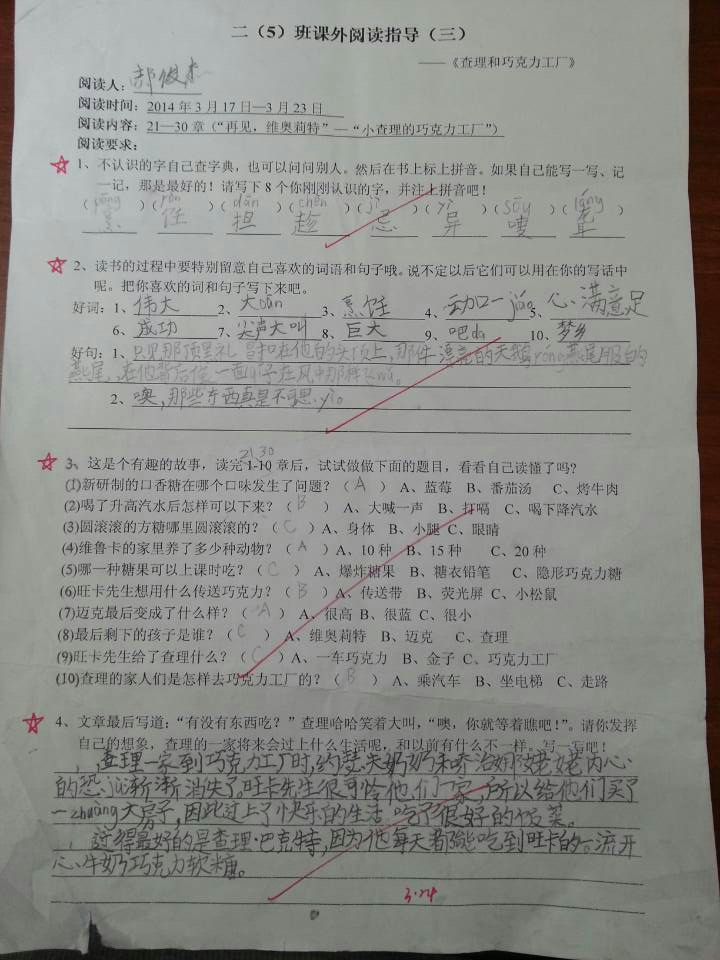 二（5）班课外阅读指导（三）
——《查理和巧克力工厂》
阅读人：郝俊杰
阅读时间：2014年3月17日—3月23日
阅读内容：21—30章（“再见，维奥莉特”—“小查理的巧克力工厂”）
阅读要求：
☆1、不认识的字自己查字典，也可以问问别人。然后在书上标上拼音。如果自己能写一写、记
一记，那是最好的！请写下8个你刚刚认识的字，并注上拼音吧！
（pēng）（rèn）（dān）（chèn）（jì）（yì）（sōu）（lóng）
烹 饪 担 趁 忌 异 嗖 聋
☆2、读书的过程中要特别留意自己喜欢的词语和句子哦。说不定以后它们可以用在你的写话中
呢。把你喜欢的词和句子写下来吧。
好词：1、伟大 2、大dǎn 3、烹饪 4、动口 5、心满意足
6、成功 7、尖声大叫 8、巨大 9、吧da 10、梦乡
好句：1、只见那顶黑礼冒扣在他的头顶上，那件漂亮的天鹅róng燕尾服的
燕尾，在他背后
2、噢，那些东西真是不可思yì。
☆3、这是个有趣的故事，读完1-10章后，试试做做下面的题目，看看自己读懂了吗？
21-30
(1)新研制的口香糖在哪个口味发生了问题？（A） A、蓝莓 B、番茄汤 C、烤牛肉
(2)喝了升高汽水后怎样可以下来？（B） A、大喊一声 B、打嗝 C、喝下降汽水
(3)圆滚滚的方糖哪里圆滚滚的？（C）A、身体 B、小腿 C、眼睛
(4)维鲁卡的家里养了多少种动物？（A）A、10种 B、15种 C、20种
(5)哪一种糖果可以上课时吃？（C） A、爆炸糖果 B、糖衣铅笔 C、隐形巧克力糖
(6)旺卡先生想用什么传送巧克力？（B）A、传送带 B、荧光屏 C、小松鼠
(7)迈克最后变成了什么样？（A） A、很高 B、很蓝 C、很小
(8)最后剩下的孩子是谁？（C） A、维奥莉特 B、迈克 C、查理
(9)旺卡先生给了查理什么？（C）A、一车巧克力 B、金子 C、巧克力工厂
(10)查理的家人们是怎样去巧克力工厂的？（B） A、乘汽车 B、坐电梯 C、走路
☆4、文章最后写道：“有没有东西吃？”查理哈哈笑着大叫，“噢，你就等着瞧吧！”。请你发挥
自己的想象，查理的一家将来会过上什么生活呢，和以前有什么不一样。写一写吧！
查理一家到巧克力工厂时，约瑟夫奶奶和乔治娜姥姥内心
的恐渐渐消失了。旺卡先生很可怜他们一家，所以给他们买了
一zhuàng大房子，因此过上了快乐的生活，吃了很好的饭菜。
过得最好的是查理·巴克特，因为他每天都能吃到旺卡的一流开
心牛奶巧克力软糖。
3.24